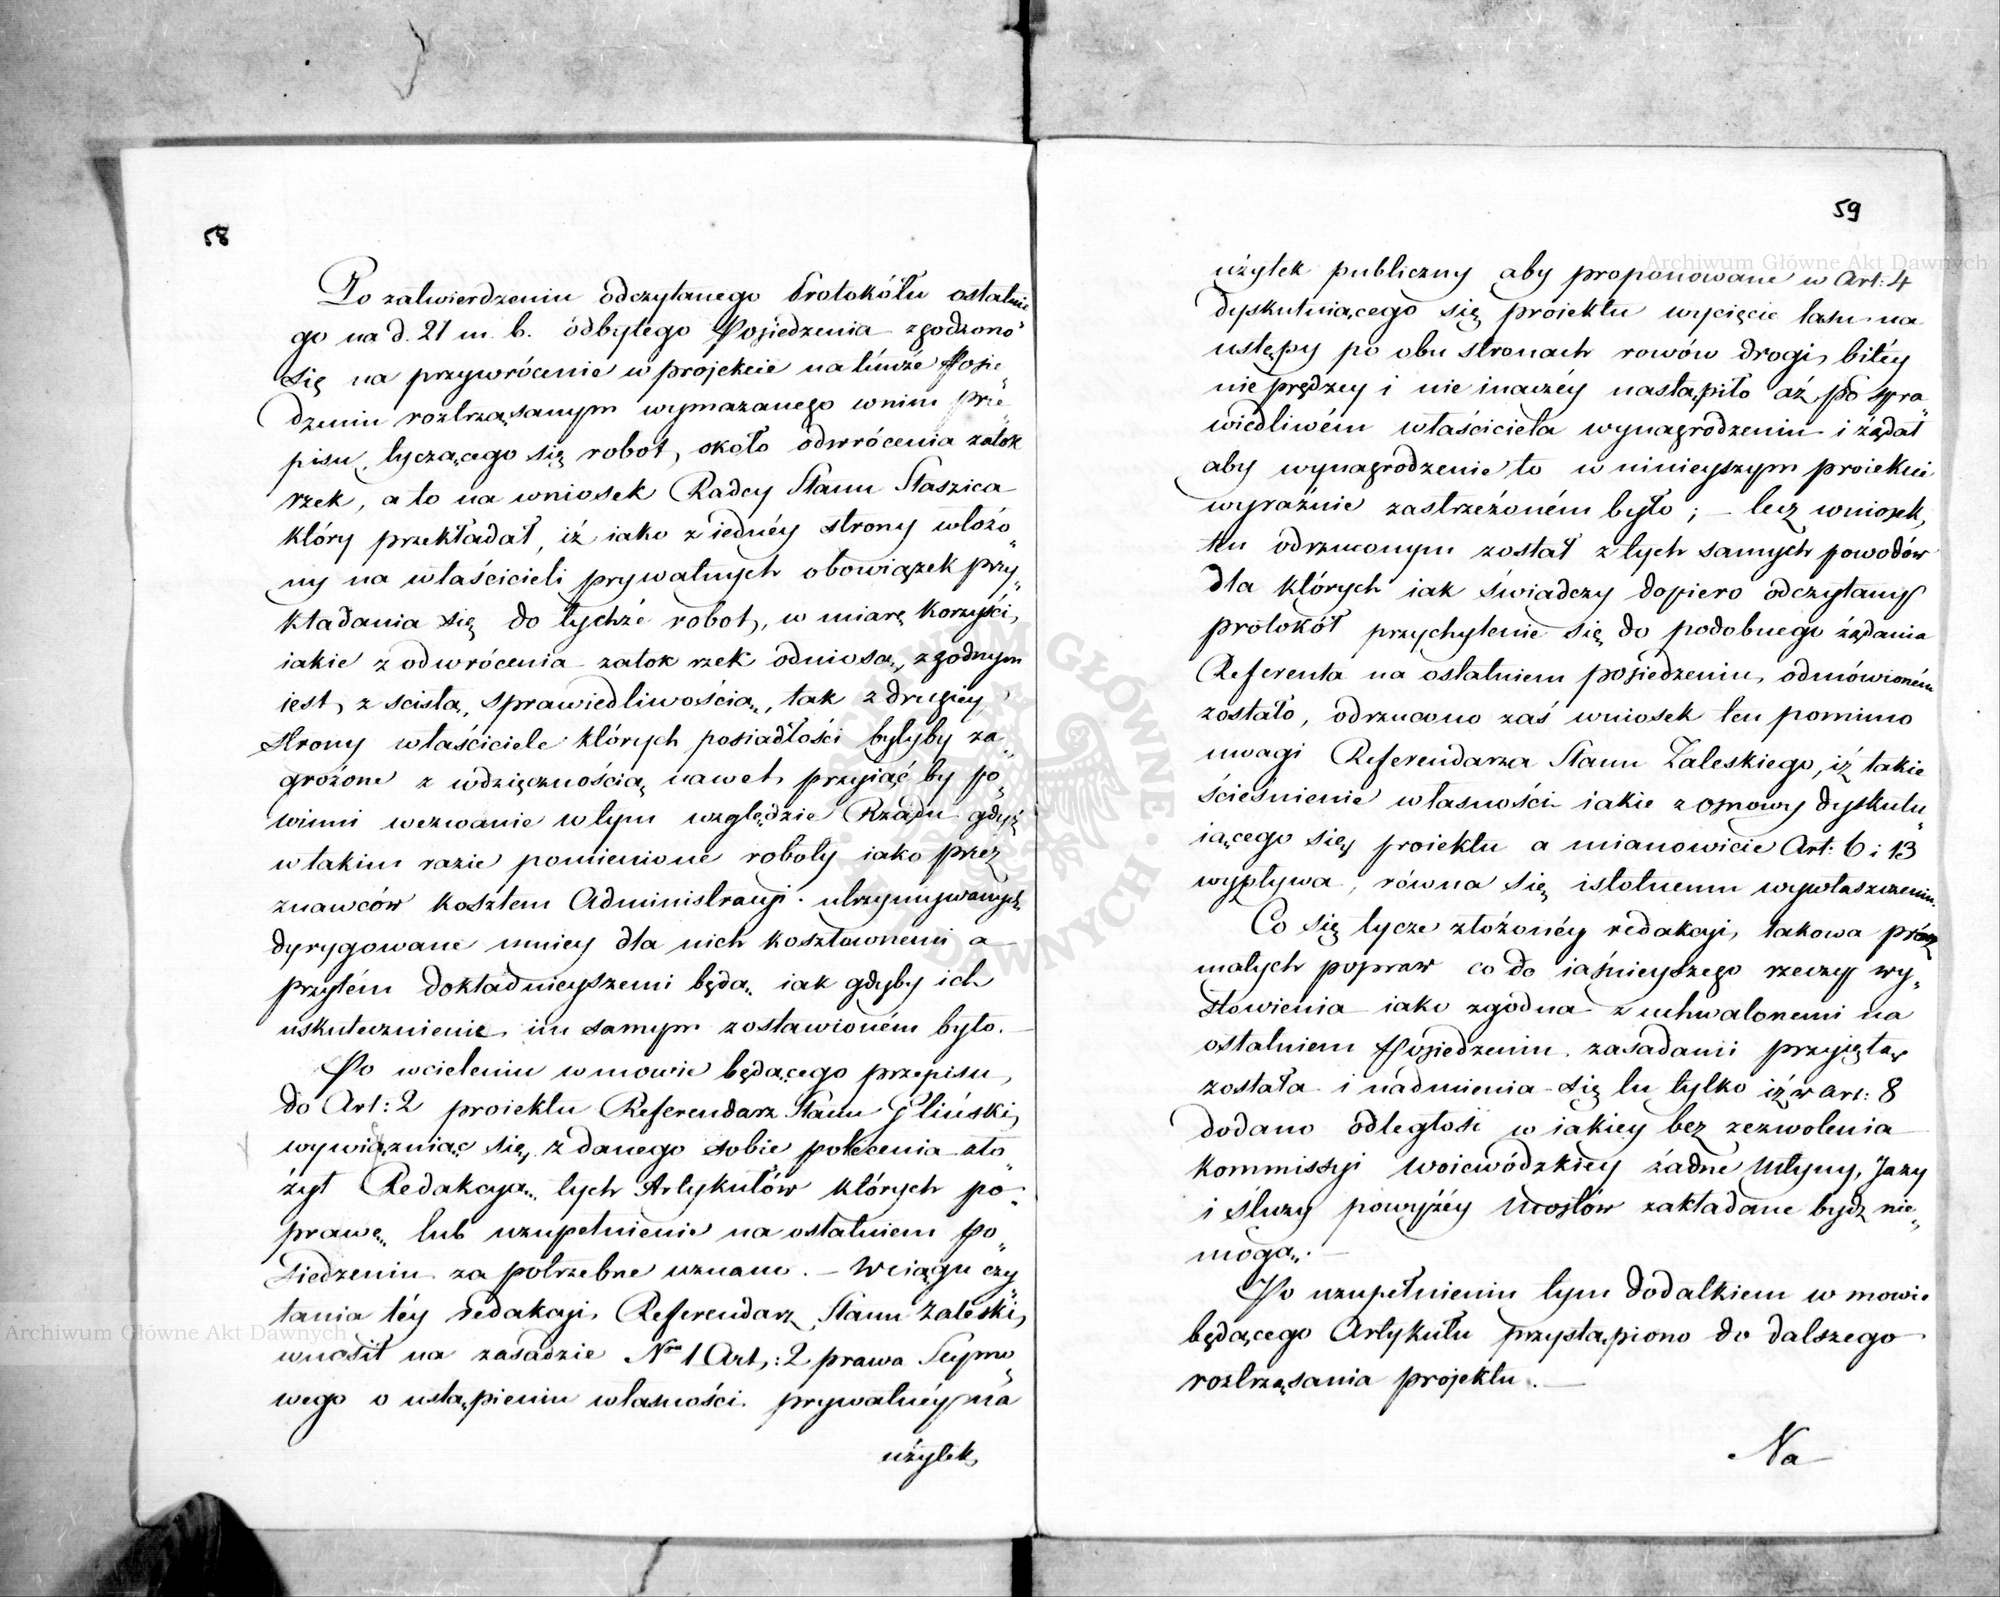 58
Po zatwierdzeniu odczytanego Protokółu ostatnie
go na d. 21 m. b. odbytego Posiedzenia zgodzono
się na przywrócenie w projekcie na témże Posie„
dzeniu roztrząsanym wymazanego w nim prze„
pisu, tyczącego się robot, około odwrócenia zatok
rzek, a to na wniosek Radcy Stanu Staszica
który przekładał, iż iako z iednéy strony włożo„
ny na właścicieli prywatnych obowiązek przy„
kładania się do tychże robot, w miarę korzyści,
iakie z odwrócenia zatok rzek odniosą, zgodnym
iest, z scisłą, sprawiedliwością, tak z drugiey
strony właściciele których posiadłości byłyby za„
grożone z wdzięcznością nawet przyiąć by po„
winni wezwanie w tym względzie Rządu gdyż
w takim razie pomienione roboty iako przez
znawców kosztem Administracyi utrzymywanych
dyrygowane mniey dla nich kosztownemi a
przytém dokładnieyszemi będą iak gdyby ich
uskutecznienie im samym zostawioném było. —
Po wcieleniu w mowie będącego przepisu,
do Art: 2 proiektu Referendarz Stanu Gliński,
wywiązuiąc się, z danego sobie polecenia zło„
żył Redakcyą tych Artykułów których po„
prawę lub uzupełnienie na ostatniem Po„
siedzeniu za potrzebne uznano. — W ciągu czy„
tania téy redakcyi Referendarz Stanu Zaleski,
wnosił na zasadzie Nru 1 Art,: 2 prawa Seymo„
wego o ustąpieniu własności prywatnéy na
użytek
59
użytek publiczny aby proponowane w Art: 4
dyskutuiącego się proiektu wycięcie lasu na
ustępy po obu stronach rowów drogi bitéy
nie prędzey i nie inaczéy nastąpiło aż po spra„
wiedliwém właściciela wynagrodzeniu i żądał
aby wynagrodzenie to w ninieyszym proiekcie
wyraźnie zastrzeżoném było; — lecz wniosek,
ten odrzuconym został z tych samych powodów
dla których iak świadczy dopiero odczytany
protokół przychylenie się do podobnego żądania
Referenta na ostatniem posiedzeniu, odmówioném
zostało, odrzucono zaś wniosek ten pomimo
uwagi Referendarza Stanu Zaleskiego, iż takie
ścieśnienie własności iakie z osnowy dyskutu„
iącego się, proiektu a mianowicie Art: 6 i 13
wypływa, równa się istotnemu wywłaszczeniu.
Co się tycze złożonéy redakcyi, takowa prócz
małych popraw co do iaśnieyszego rzeczy wy„
słowienia iako zgodna z uchwalonemi na
ostatniem Posiedzeniu zasadami przyiętą
została i nadmienia się tu tylko iż w Art: 8
dodano odległość w iakiey bez zezwolenia
Kommissyi Woiewódzkiey żadne Młyny, Jazy
i śluzy powyżéy Mostów zakładane bydź nie„
mogą. —
Po uzupełnieniu tym dodatkiem w mowie
będącego Artykułu przystąpiono do dalszego
roztrząsania projektu. —
Na
Archiwum Główne Akt Dawnych
Archiwum Główne Akt Dawnych
ARCHIWUM GŁÓWNE AKT DAWNYCH